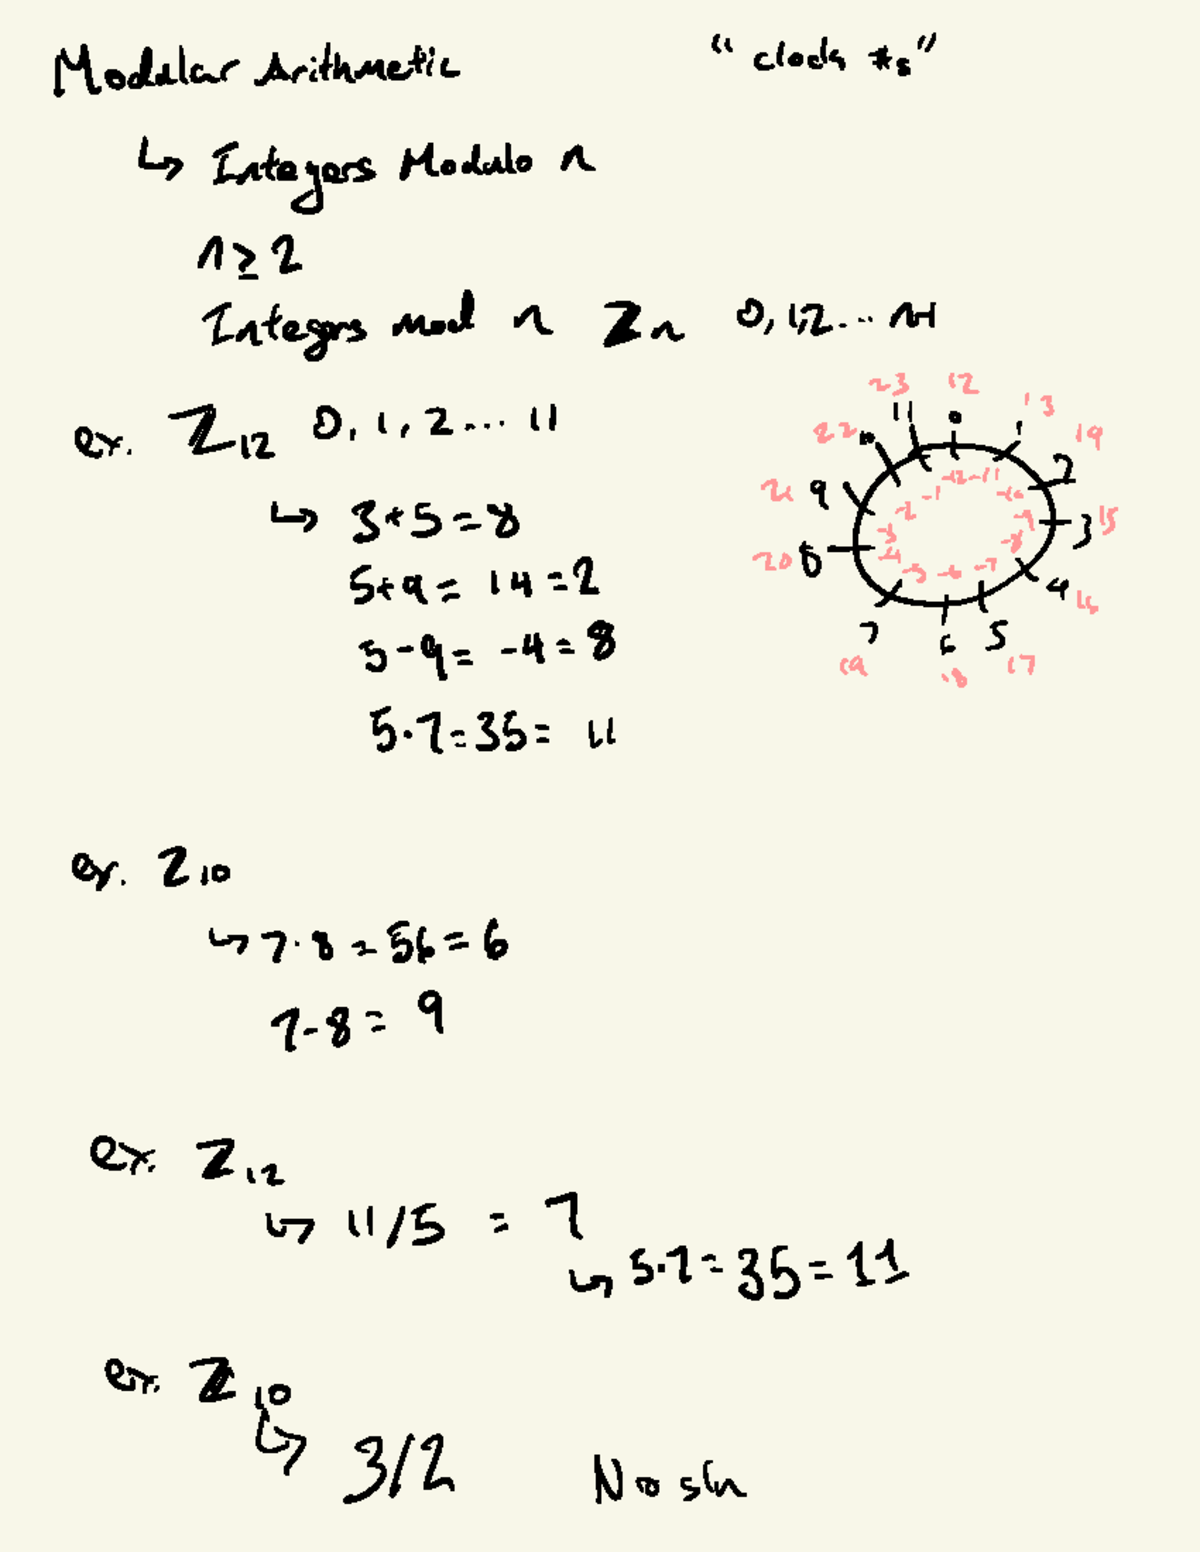 Modular Arithmetic
"clock #s"
↳ Integers Modulo n
n ≥ 2
Integers mod n Zn 0, 1, 2 ... n-1
ex. Z12 0, 1, 2 ... 11
23 12 13
11 0 1
22 10 2 19
-12 -11
-1 -10
21 9 -2 -9 3 15
-3 -8
20 8 -4 -5 -6 -7 4 16
7 6 5
19 18 17
↳ 3+5=8
5+9=14=2
5-9=-4=8
5·7=35=11
ex. Z10
↳ 7·8=56=6
7-8=9
ex. Z12
↳ 11/5 = 7
↳ 5·7=35=11
ex. Z10
↳ 3/2 No sln